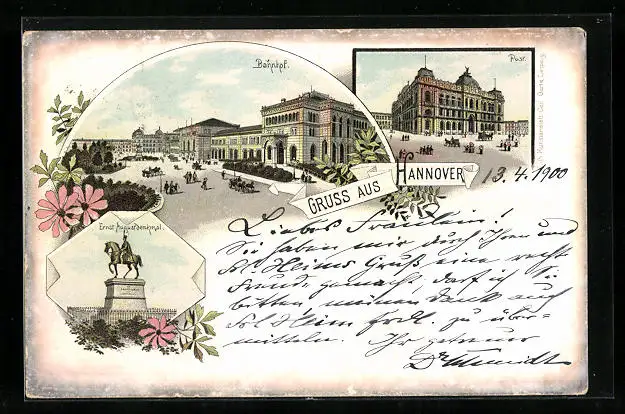 Bahnhof.
Post.
Kunstanstalt
GRUSS AUS HANNOVER
13.4.1900
Ernst Augustdenkmal.
Liebes Fräulein!
Sie haben mir durch Ihren und
Frl. Heims Gruß eine recht
Freude gemacht, darf ich Sie
bitten, meinen Dank auch
Frl Heim frdl. zu über-
mitteln. Ihr getreuer
Dr Schmidt